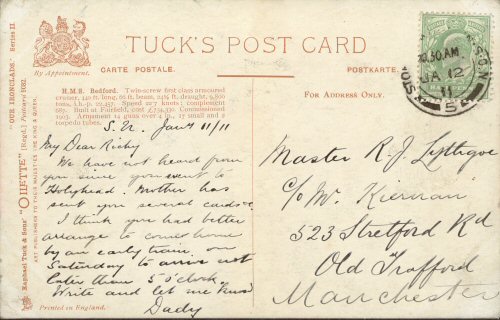 TUCK'S POST CARD
By Appointment.
CARTE POSTALE.
POSTKARTE.
FOR ADDRESS ONLY.
"OUR IRONCLADS" Series II
Raphael Tuck & Sons' "OILETTE" [Regd.] Postcard
ART PUBLISHERS TO THEIR MAJESTIES THE KING & QUEEN.
Printed in England.
H.M.S. Bedford. Twin-screw first class armoured
cruiser, 440 ft. long, 66 ft. beam, 24½ ft. draught, 9,800
tons, i.h.p. 22,457. Speed 22·7 knots; complement
687. Built at Fairfield, cost £734,330. Commissioned
1903. Armament 14 guns over 4 in., 13 small and 2
torpedo tubes.
10.30AM
JA 12
11
Jany 11/11
My Dear Richy
We have not heard from
you since you went to
Holyhead. Mother has
sent you several cards
I think you had better
arrange to come home
by an early train, on
Saturday to arrive not
later than 5 o'clock.
Write and let me know
Dady
Master R. J. Lythgoe
c/o Mr. Kiernan
523 Stretford Rd
Old Trafford
Manchester